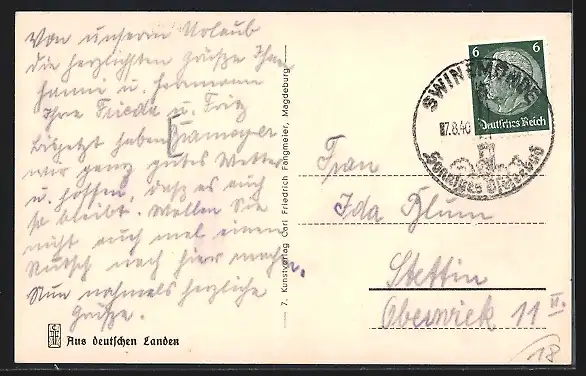 Von unserm Urlaub
die herzlichsten Grüße Ihre
Hanni u. Hermann
Ihre Frieda u. Fritz
Bisjetzt haben
wir ganz gutes Wetter
u. hoffen, daß es auch
so bleibt. Wollen Sie
nicht auch mal einen
Rutsch nach hier machen.
Nun nochmals herzliche
Grüße.
Aus deutschen Landen
7. Kunstverlag Carl Friedrich Fangmeier, Magdeburg
6 6
Deutsches Reich
SWINEMÜNDE
17.8.40
Sonniges Ostseebad
Frau
Ida Blum
Stettin
Oberwiek 11 II.
18